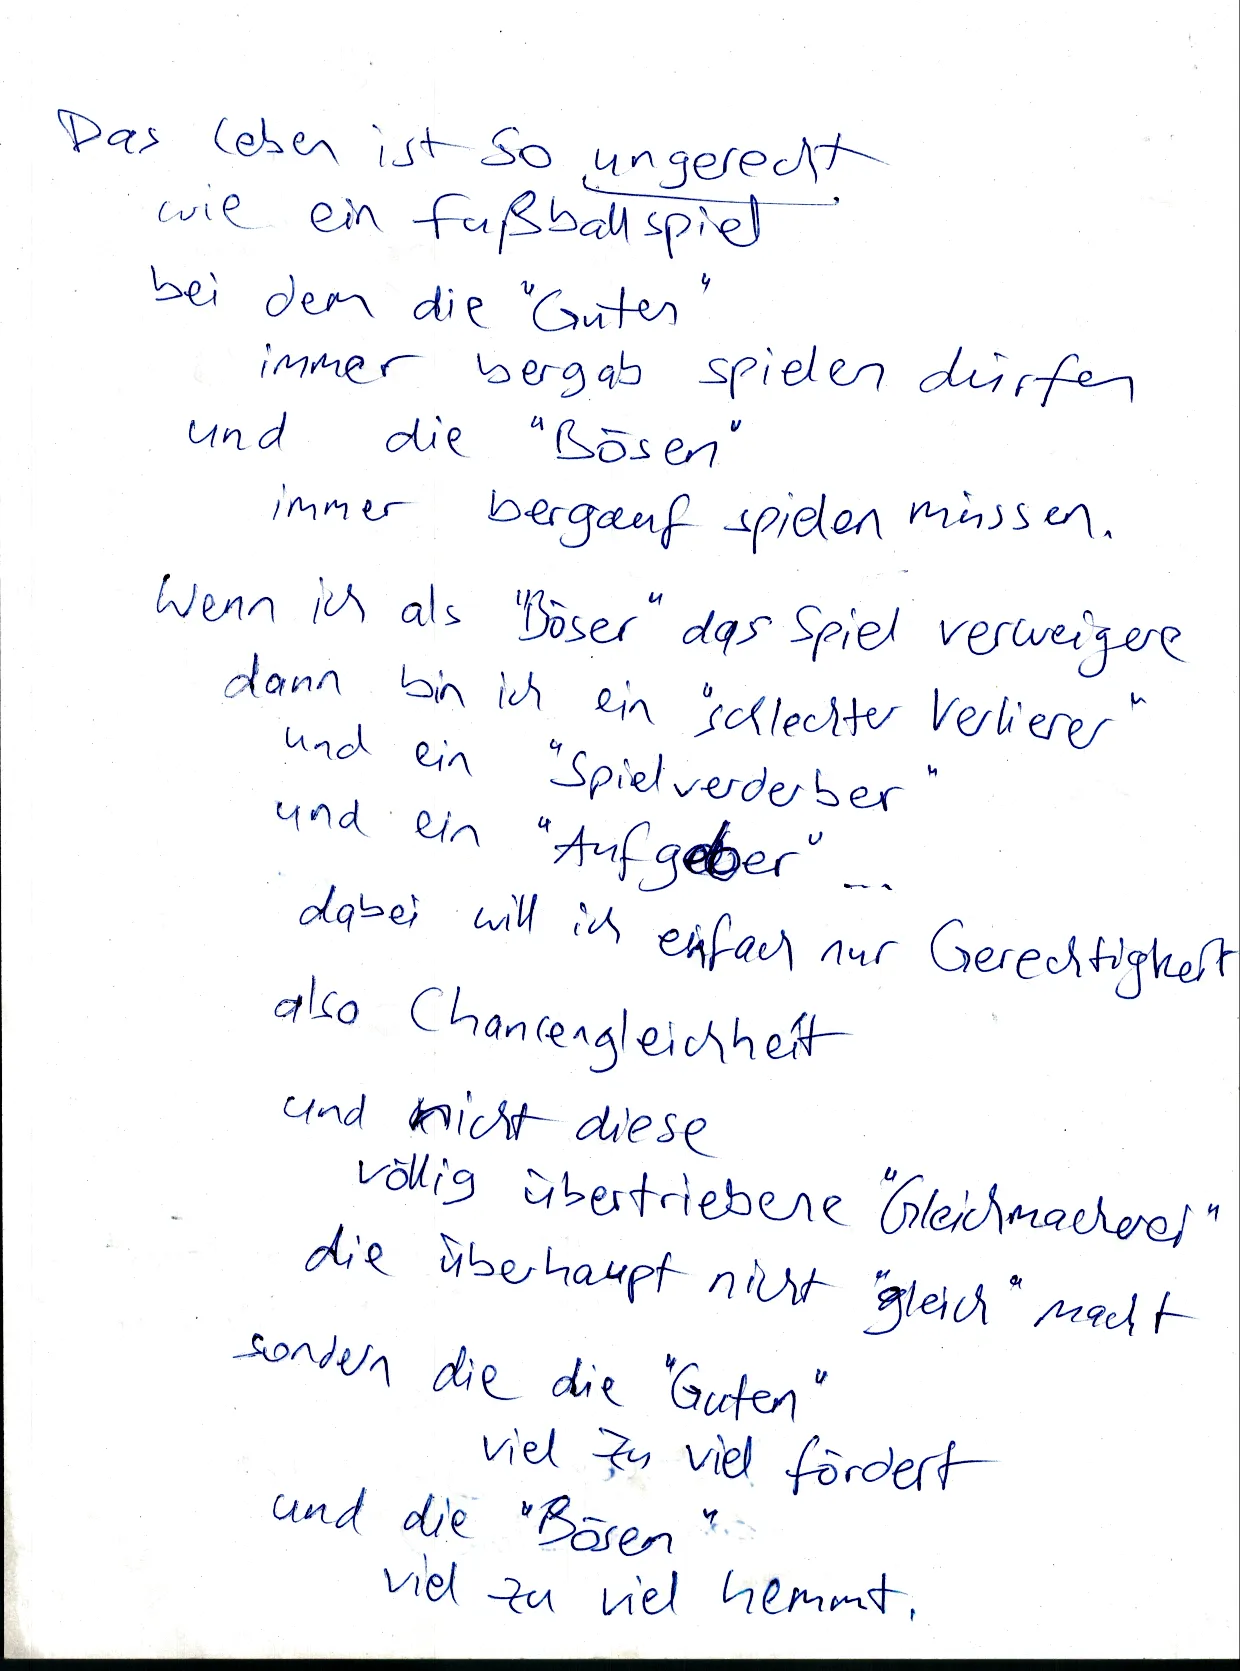 Das Leben ist so ungerecht
wie ein Fußballspiel
bei dem die "Guten"
immer bergab spielen dürfen
und die "Bösen"
immer bergauf spielen müssen.
Wenn ich als "Böser" das Spiel verweigere
dann bin ich ein "schlechter Verlierer"
und ein "Spielverderber"
und ein "Aufgeber" ...
dabei will ich einfach nur Gerechtigkeit
also Chancengleichheit
und nicht diese
völlig übertriebene "Gleichmacherei"
die überhaupt nicht "gleich" macht
sondern die die "Guten"
viel zu viel fördert
und die "Bösen"
viel zu viel hemmt.